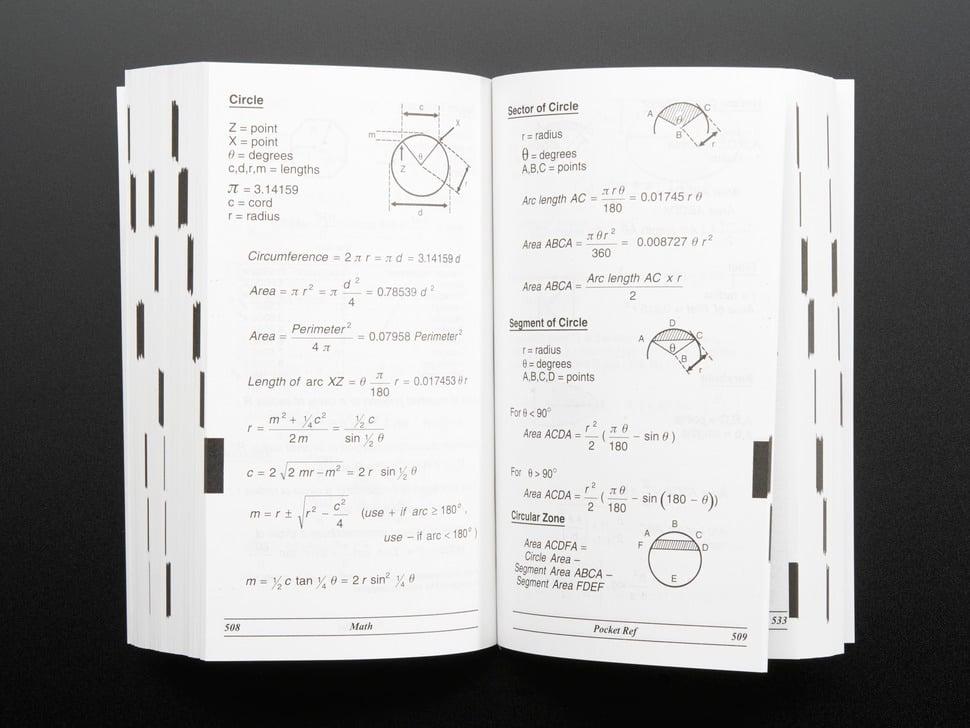 Circle
Z = point
X = point
θ = degrees
c,d,r,m = lengths
π = 3.14159
c = cord
r = radius
c
X
m
θ
Z
r
d
Circumference = 2 π r = π d = 3.14159 d
Area = π r² = π d²/4 = 0.78539 d²
Area = Perimeter²/4 π = 0.07958 Perimeter²
Length of arc XZ = θ π/180 r = 0.017453 θ r
r = m² + ¼c²/2m = ½ c/sin ½ θ
c = 2 √(2 mr – m²) = 2 r sin ½ θ
m = r ± √(r² – c²/4) (use + if arc ≥ 180°,
use – if arc < 180°)
m = ½ c tan ¼ θ = 2 r sin² ¼ θ
508 Math
Sector of Circle
r = radius
θ = degrees
A,B,C = points
A
C
θ
B
r
Arc length AC = π r θ/180 = 0.01745 r θ
Area ABCA = π θ r²/360 = 0.008727 θ r²
Area ABCA = Arc length AC x r/2
Segment of Circle
r = radius
θ = degrees
A,B,C,D = points
D
A
C
θ
B
r
For θ < 90°
Area ACDA = r²/2 ( π θ/180 – sin θ )
For θ > 90°
Area ACDA = r²/2 ( π θ/180 – sin (180 – θ))
Circular Zone
Area ACDFA =
Circle Area –
Segment Area ABCA –
Segment Area FDEF
B
A
C
F
D
E
Pocket Ref 509
533